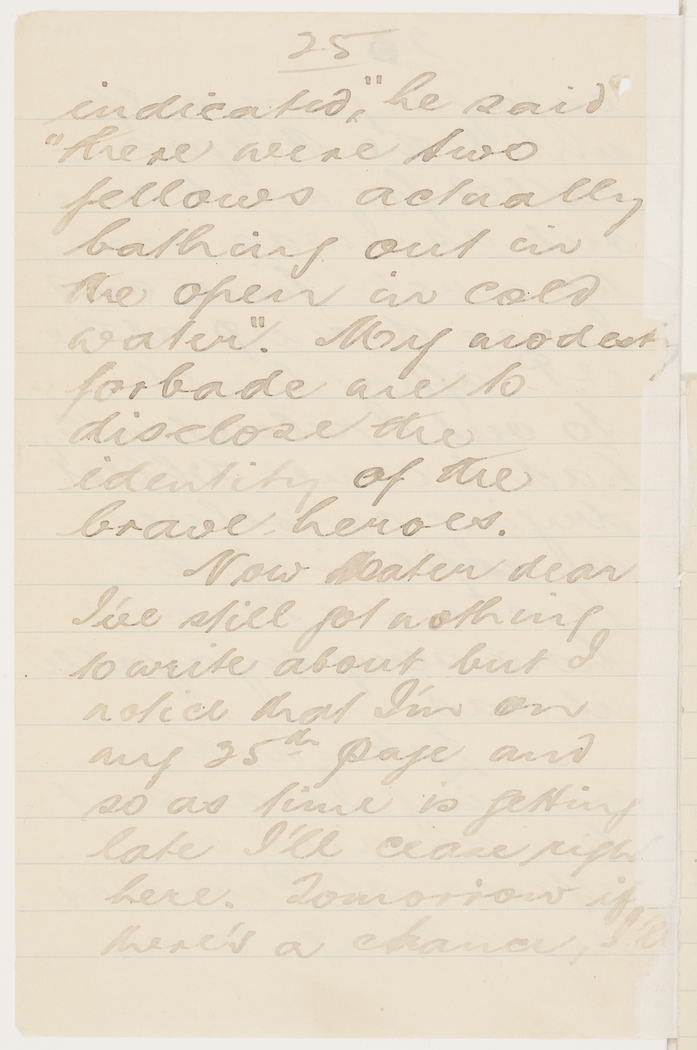 25
indicated," he said
"there were two
fellows actually
bathing out in
the open in cold
water". My modesty
forbade me to
disclose the
identity of the
brave heroes.
Now Mater dear
I've still got nothing
to write about but I
notice that I'm on
my 25th page and
so as time is getting
late I'll cease right
here. Tomorrow if
there's a chance, I'll